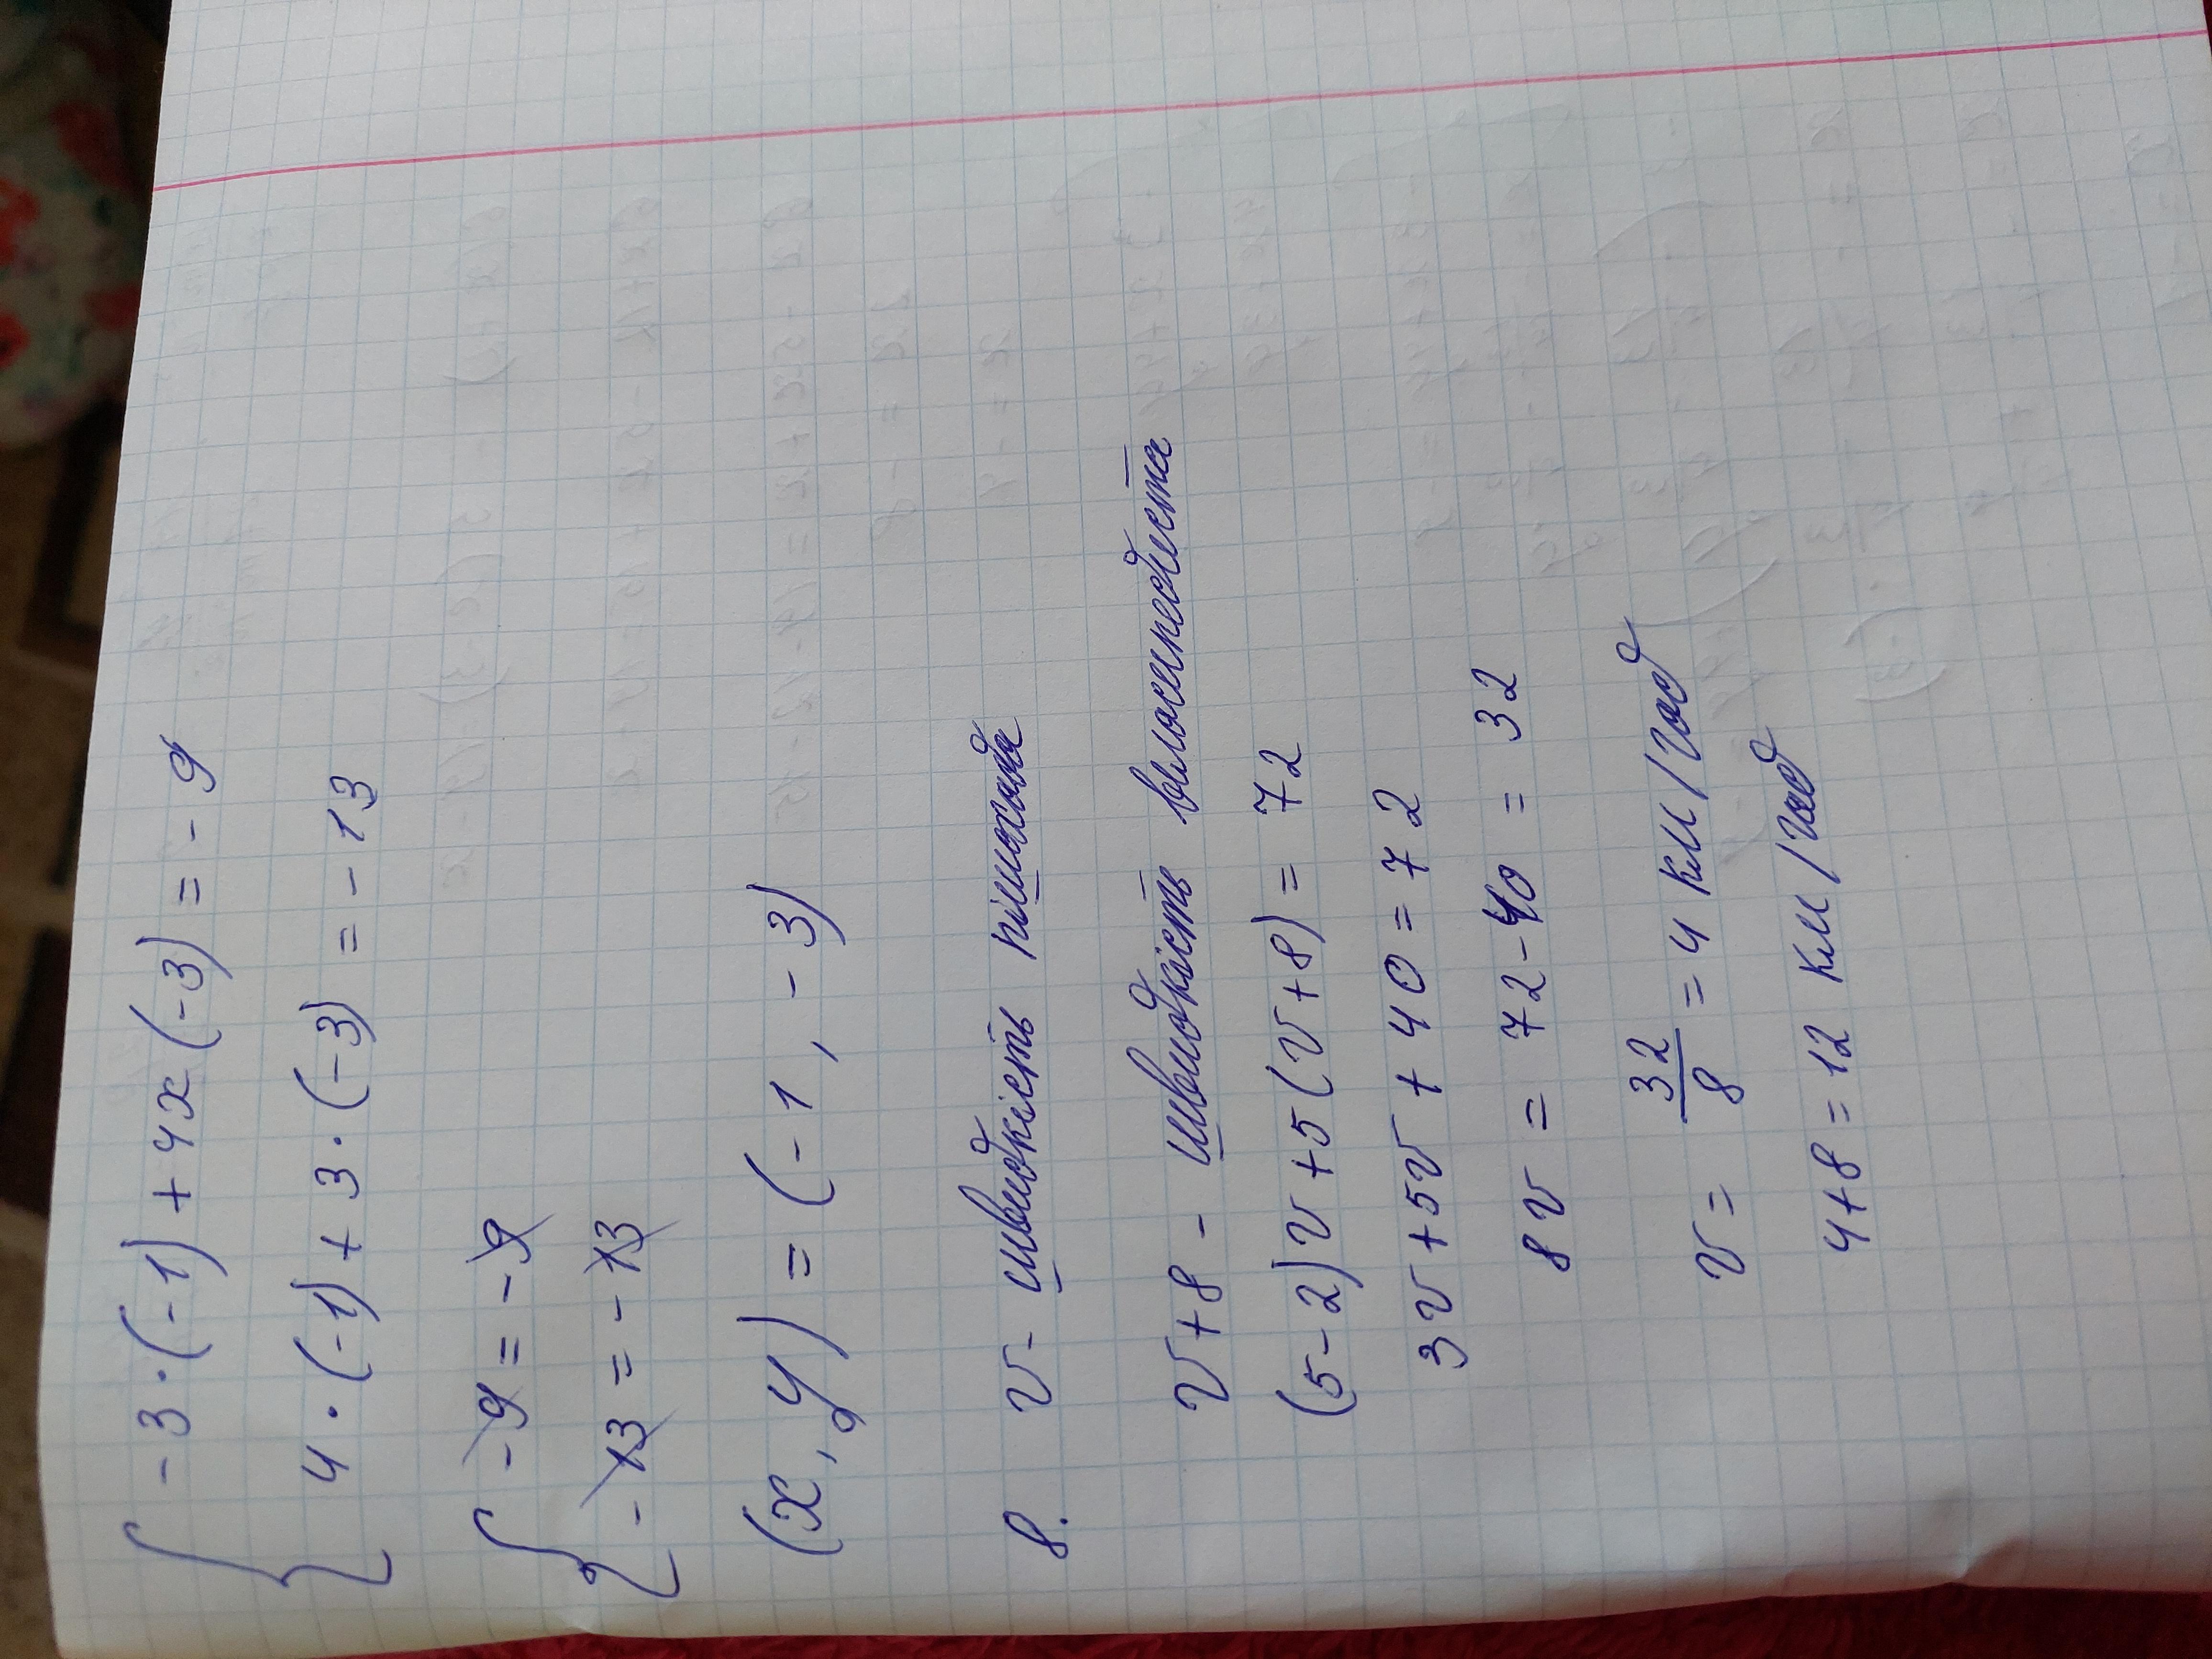 { -3·(-1)+4x(-3)=-9
4·(-1)+3·(-3)=-13
{ -9=-9
-13=-13
(x,y)=(-1,-3)
8. v- швидкість пішохода
v+8 - швидкість велосипедиста
(5-2)v+5(v+8)=72
3v+5v+40=72
8v=72-40=32
v= 32/8 =4 км/год
4+8=12 км/год